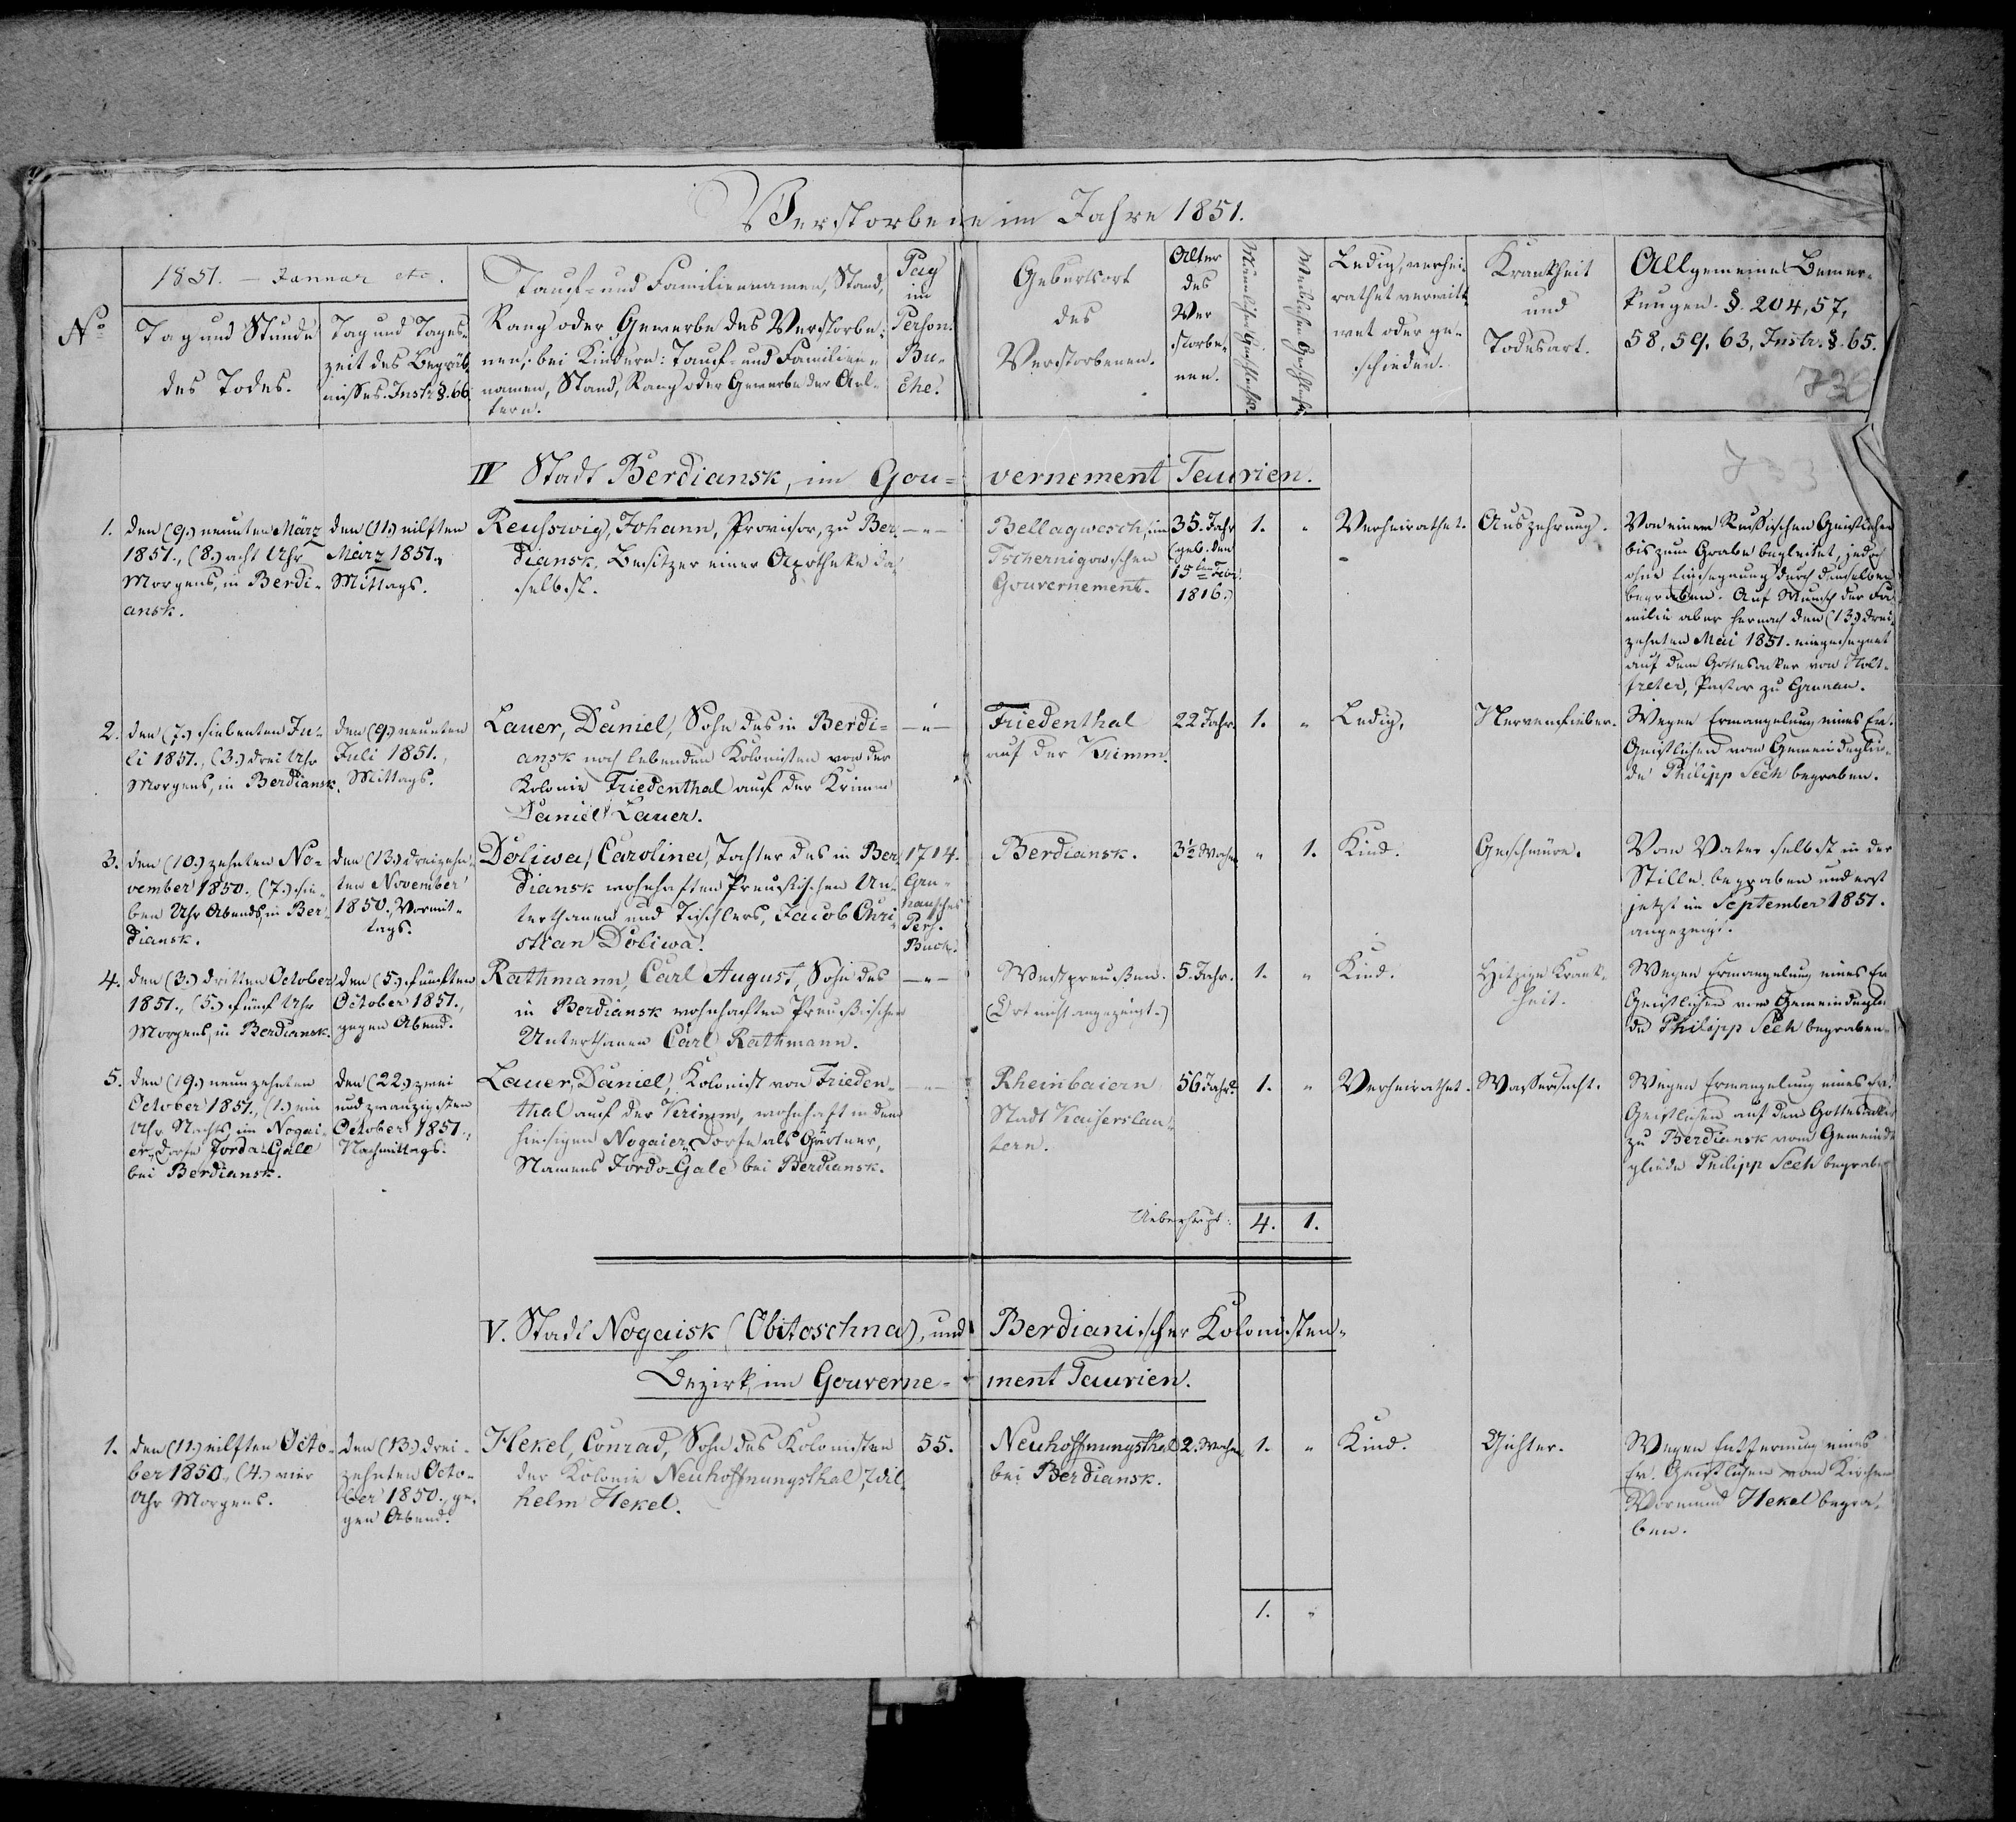 Verstorbene im Jahre 1851.
No.
1851. – Januar etc.
Tag und Stunde
des Todes.
Tag und Tages-
zeit des Begräb-
nisses. Instr. §. 66.
Tauf- und Familiennamen, Stand,
Rang oder Gewerbe des Verstorbe-
nen; bei Kindern: Tauf- und Familien-
namen, Stand, Rang oder Gewerbe der Ael-
tern.
Pag
im
Person.
Bu-
che.
Geburtsort
des
Verstorbenen.
Alter
des
Ver
storbe-
nen.
Männlichen Geschlechts.
Weiblichen Geschlechts.
Ledig, verhei-
rathet verwitt-
wet oder ge-
schieden.
Krankheit
und
Todesart.
Allgemeine Bemer-
kungen. §. 204, 57,
58, 59, 63, Instr. §. 65.
733
IV Stadt Berdiansk, im Gou- vernement Taurien.
1.
den (9.) neunten März
1851., (8.) acht Uhr
Morgens, in Berdi-
ansk.
den (11.) eilften
März 1851.,
Mittags.
Reusswig, Johann, Provisor, zu Ber-
diansk, Besitzer einer Apotheke da-
selbst.
–"–
Bellagwesch, im
Tschernigowschen
Gouvernement.
35. Jahr
(geb. den
15ten
1816.)
1.
"
Verheirathet.
Auszehrung.
Von einem Russischen Geistlichen
bis zum Grabe begleitet, jedoch
ohne Einsegnung durch denselben
begraben. Auf Wunsch der Fa-
milie aber hernach den (13.) drei-
zehnten Mai 1851. eingesegnet
auf dem Gottesacker von Holt-
freter, Pastor zu Grunau.
2.
den (7.) siebenten Ju-
li 1851., (3.) drei Uhr
Morgens, in Berdiansk.
den (9.) neunten
Juli 1851.,
Mittags.
Lauer, Daniel, Sohn des in Berdi-
ansk noch lebenden Kolonisten von der
Kolonie Friedenthal auf der Krimm
Daniel Lauer.
–"–
Friedenthal
auf der Krimm.
22 Jahr.
1.
"
Ledig.
Nervenfieber.
Wegen Ermangelung eines Ev.
Geistlichen vom Gemeindeglie-
de Philipp Seeh begraben.
3.
den (10.) zehnten No-
vember 1850. (7.) sie-
ben Uhr Abends, in Ber-
diansk.
den (13.) dreizehn-
ten November
1850., Vormit-
tags.
Doliwa, Carolina, Tochter des in Ber-
diansk wohnhaften Preussischen Un-
terthanen und Tischlers, Jacob Chri-
stian Doliwa.
1714.
Gru-
nausches
Pers.
Buch.
Berdiansk.
3½ Woche
"
1.
Kind.
Geschwüre.
Vom Vater selbst in der
Stille begraben und erst
jetzt im September 1851.
angezeigt.
4.
den (3.) dritten October
1851., (5.) fünf Uhr
Morgens, in Berdiansk.
den (5.) fünften
October 1851.,
gegen Abend.
Rathmann, Carl August, Sohn des
in Berdiansk wohnhaften Preußischen
Unterthanen Carl Rathmann.
–"–
Westpreußen.
(Ort nicht angezeigt.)
5. Jahr.
1.
"
Kind.
Hitzige Krank-
heit.
Wegen Ermangelung eines Ev
Geistlichen vom Gemeindeglie
de Philipp Seeh begraben.
5.
den (19.) neunzehnten
October 1851., (1.) ein
Uhr Nachts, im Nogai-
er-Dorfe Jordo-Gale
bei Berdiansk.
den (22.) zwei
und zwanzigsten
October 1851.,
Nachmittags.
Lauer, Daniel, Kolonist von Frieden-
thal auf der Krimm, wohnhaft in dem
hiesigen Nogaier-Dorfe als Gärtner,
Namens Jordo-Gale bei Berdiansk.
–"–
Rheinbaiern
Stadt Kaiserslau-
tern.
56 Jahr.
1.
"
Verheirathet.
Wassersucht.
Wegen Ermangelung eines Ev.
Geistlichen auf dem Gottesacker
zu Berdiansk vom Gemeinde
gliede Philipp Seeh begrab
Ueberhaupt: 4. 1.
V. Stadt Nogaisk (Obitoschna), und Berdianischer Kolonisten-
Bezirk, im Gouverne- ment Taurien.
1.
den (11.) eilften Octo-
ber 1850., (4.) vier
Uhr Morgens.
den (13.) drei-
zehnten Octo-
ber 1850., ge-
gen Abend.
Hekel, Conrad, Sohn des Kolonisten
der Kolonie Neuhoffnungsthal, Wil-
helm Hekel.
55.
Neuhoffnungsthal
bei Berdiansk.
2. Woche
1.
"
Kind.
Gichter.
Wegen Entfernung eines
Ev. Geistlichen vom Kirchen
Vormund Hekel begra-
ben.
1. "